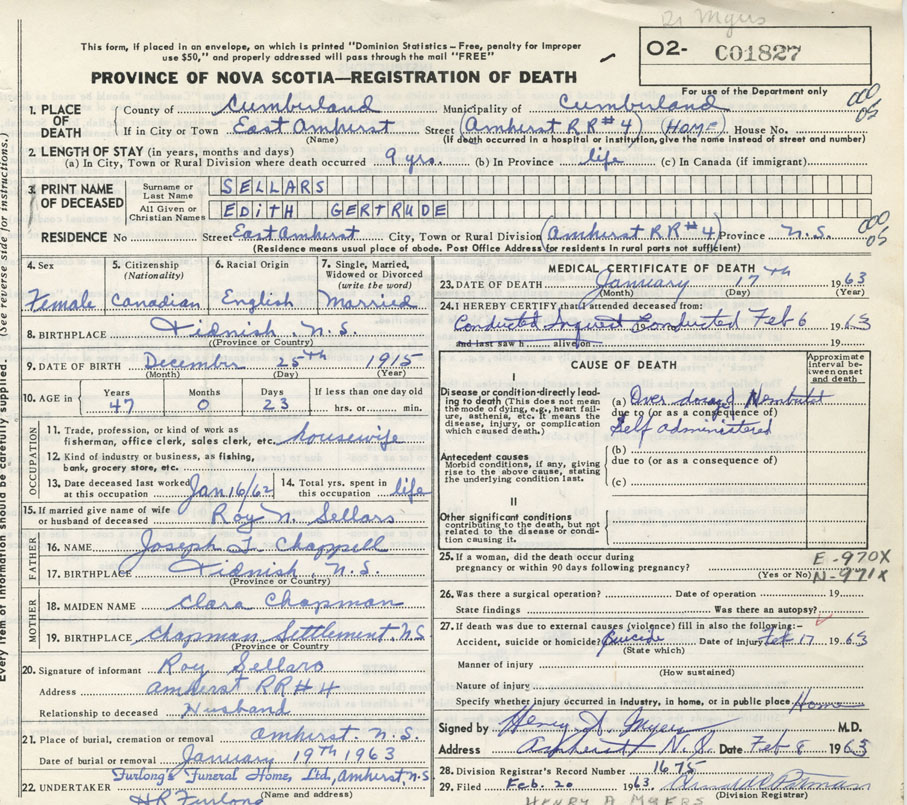 Dr Myers
This form, if placed in an envelope, on which is printed "Dominion Statistics – Free, penalty for improper
use $50," and properly addressed will pass through the mail "FREE"
O2- C01827
For use of the Department only
PROVINCE OF NOVA SCOTIA—REGISTRATION OF DEATH
1. PLACE OF DEATH
County of Cumberland Municipality of Cumberland
If in City or Town East Amherst Street (Amherst RR#4) (HOME) House No.
(Name) (If death occurred in a hospital or institution, give the name instead of street and number)
000
05
2. LENGTH OF STAY (in years, months and days)
(a) In City, Town or Rural Division where death occurred 9 yrs. (b) In Province life (c) In Canada (if immigrant)
3. PRINT NAME OF DECEASED
Surname or Last Name SELLARS
All Given or Christian Names EDITH GERTRUDE
RESIDENCE No Street East Amherst City, Town or Rural Division (Amherst RR#4) Province N.S.
(Residence means usual place of abode. Post Office Address for residents in rural parts not sufficient)
000
05
4. Sex 5. Citizenship (Nationality) 6. Racial Origin 7. Single, Married, Widowed or Divorced (write the word)
Female Canadian English Married
8. BIRTHPLACE Tidnish, N.S.
(Province or Country)
9. DATE OF BIRTH December 25th 1915
(Month) (Day) (Year)
10. AGE in Years Months Days If less than one day old
47 0 23 hrs. or min.
OCCUPATION
11. Trade, profession, or kind of work as
fisherman, office clerk, sales clerk, etc. housewife
12. Kind of industry or business, as fishing,
bank, grocery store, etc.
13. Date deceased last worked at this occupation Jan 16/62
14. Total yrs. spent in this occupation life
15. If married give name of wife
or husband of deceased Roy N. Sellars
FATHER
16. NAME Joseph T. Chappell
17. BIRTHPLACE Tidnish, N.S.
(Province or Country)
MOTHER
18. MAIDEN NAME Clara Chapman
19. BIRTHPLACE Chapman Settlement N.S.
(Province or Country)
20. Signature of informant Roy Sellars
Address Amherst RR#4
Relationship to deceased Husband
21. Place of burial, cremation or removal Amherst N.S.
Date of burial or removal January 19th 1963
22. UNDERTAKER Furlong's Funeral Home, Ltd, Amherst, N.S.
(Name and address)
HR Furlong
MEDICAL CERTIFICATE OF DEATH
23. DATE OF DEATH January 17th 1963
(Month) (Day) (Year)
24. I HEREBY CERTIFY that I attended deceased from:
Conducted Inquest Conducted Feb 6 1963
and last saw h alive on 19
CAUSE OF DEATH
Approximate interval between onset and death
I
Disease or condition directly leading to death (This does not mean
the mode of dying, e.g., heart failure, asthenia, etc. It means the
disease, injury, or complication
which caused death.)
(a) Over dosage Nembutal
due to (or as a consequence of)
Self administered
Antecedent causes
Morbid conditions, if any, giving
rise to the above cause, stating
the underlying condition last.
(b)
due to (or as a consequence of)
(c)
II
Other significant conditions
contributing to the death, but not
related to the disease or condition causing it.
25. If a woman, did the death occur during
pregnancy or within 90 days following pregnancy?
(Yes or No)
E-970X
N-971X
26. Was there a surgical operation? Date of operation 19
State findings Was there an autopsy?
27. If death was due to external causes (violence) fill in also the following:-
Accident, suicide or homicide? Suicide Date of injury Feb 17 1963
(State which)
Manner of injury
(How sustained)
Nature of injury
Specify whether injury occurred in industry, in home, or in public place Home
Signed by Henry A. Myers M.D.
Address Amherst N.S. Date Feb 8 1963
28. Division Registrar's Record Number 1675
29. Filed Feb. 20 1963
(Division Registrar)
HENRY A MYERS
Every item of information should be carefully supplied. (See reverse side for instructions.)